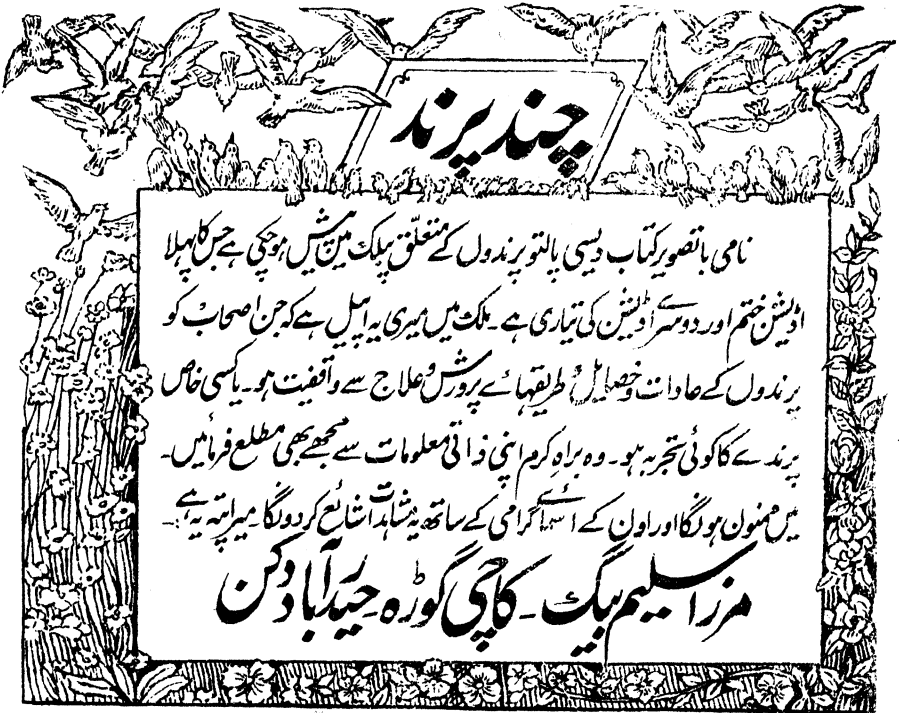 چند پرند
نامی با تصویر کتاب دیسی پالتو پرندوں کے متعلق پبلک میں پیش ہوچکی ہے جس کا پہلا
اڈیشن ختم اور دوسرے اڈیشن کی تیاری ہے۔ ملک میں میری یہ اپیل ہے کہ جن اصحاب کو
پرندوں کے عادات و خصایل و طریقہائے پرورش و علاج سے واقفیت ہو۔ یا کسی خاص
پرندے کا کوئی تجربہ ہو۔ وہ براہِ کرم اپنی ذاتی معلومات سے مجھے بھی مطلع فرمائیں۔
میں ممنون ہونگا اور اون کے اسمائے گرامی کے ساتھ یہ مشاہدات شائع کردونگا۔ میرا پتہ یہ ہے:۔
مرزا سلیم بیگ۔ کاچی گوڑہ۔ حیدرآباد دکن